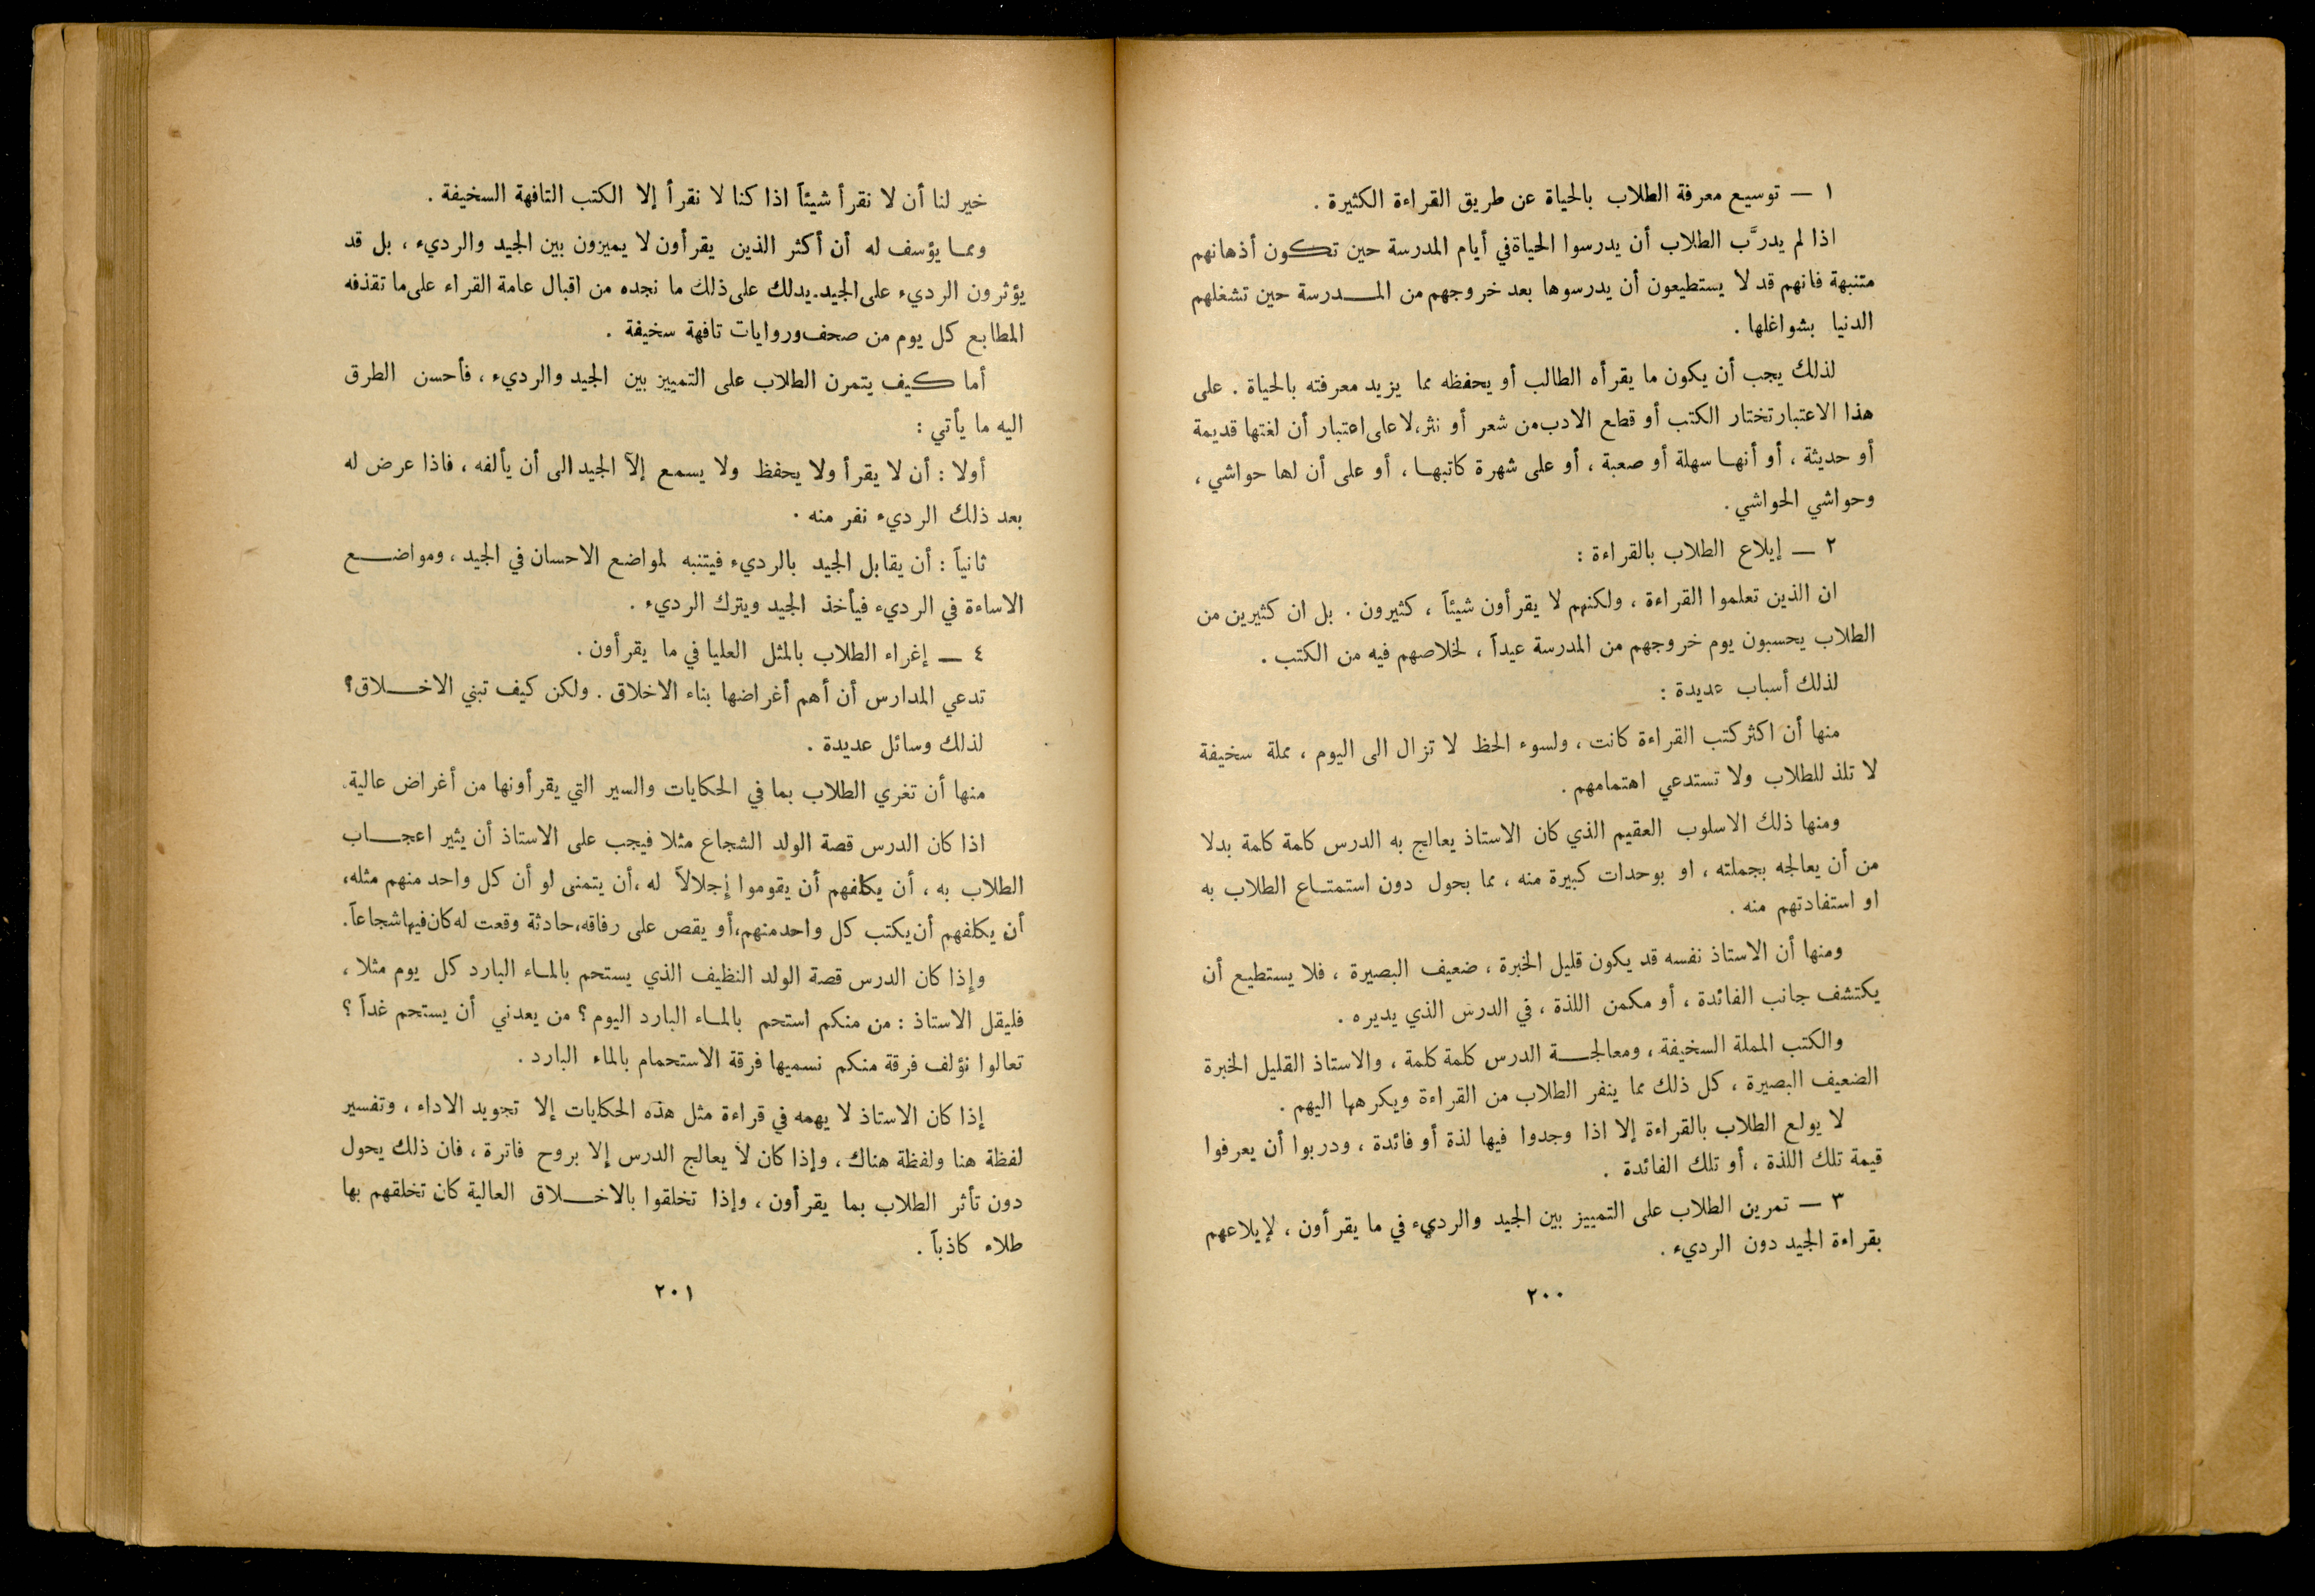 ١ — توسيع معرفة الطلاب بالحياة عن طريق القراءة الكثيرة .
اذا لم يدرَّب الطلاب أن يدرسوا الحياة في أيام المدرسة حين تكون أذهانهم
متنبهة فانهم قد لا يستطيعون أن يدرسوها بعد خروجهم من المدرسة حين تشغلهم
الدنيا بشواغلها .
لذلك يجب أن يكون ما يقرأه الطالب أو يحفظه مما يزيد معرفته بالحياة . على
هذا الاعتبار تختار الكتب أو قطع الادب من شعر أو نثر، لا على اعتبار أن لغتها قديمة
أو حديثة ، أو أنها سهلة أو صعبة ، أو على شهرة كاتبها ، أو على أن لها حواشي ،
وحواشي الحواشي .
٢ — إيلاع الطلاب بالقراءة :
ان الذين تعلموا القراءة ، ولكنهم لا يقرأون شيئاً ، كثيرون . بل ان كثيرين من
الطلاب يحسبون يوم خروجهم من المدرسة عيداً ، لخلاصهم فيه من الكتب .
لذلك أسباب عديدة :
منها أن اكثر كتب القراءة كانت ، ولسوء الحظ لا تزال الى اليوم ، مملة سخيفة
لا تلذ للطلاب ولا تستدعي اهتمامهم .
ومنها ذلك الاسلوب العقيم الذي كان الاستاذ يعالج به الدرس كلمة كلمة بدلا
من أن يعالجه بجملته ، او بوحدات كبيرة منه ، مما يحول دون استمتاع الطلاب به
او استفادتهم منه .
ومنها أن الاستاذ نفسه قد يكون قليل الخبرة ، ضعيف البصيرة ، فلا يستطيع أن
يكتشف جانب الفائدة ، أو مكمن اللذة ، في الدرس الذي يديره .
والكتب المملة السخيفة ، ومعالجة الدرس كلمة كلمة ، والاستاذ القليل الخبرة
الضعيف البصيرة ، كل ذلك مما ينفر الطلاب من القراءة ويكرهها اليهم .
لا يولع الطلاب بالقراءة إلا اذا وجدوا فيها لذة أو فائدة ، ودربوا أن يعرفوا
قيمة تلك اللذة ، أو تلك الفائدة .
٣ — تمرين الطلاب على التمييز بين الجيد والرديء في ما يقرأون ، لإيلاعهم
بقراءة الجيد دون الرديء .
٢٠٠
خير لنا أن لا نقرأ شيئاً اذا كنا لا نقرأ إلا الكتب التافهة السخيفة .
ومما يؤسف له أن أكثر الذين يقرأون لا يميزون بين الجيد والرديء ، بل قد
يؤثرون الرديء على الجيد . يدلك على ذلك ما نجده من اقبال عامة القراء على ما تقذفه
المطابع كل يوم من صحف وروايات تافهة سخيفة .
أما كيف يتمرن الطلاب على التمييز بين الجيد والرديء ، فأحسن الطرق
اليه ما يأتي :
أولا : أن لا يقرأ ولا يحفظ ولا يسمع إلآ الجيد الى أن يألفه ، فاذا عرض له
بعد ذلك الرديء نفر منه .
ثانياً : أن يقابل الجيد بالرديء فيتنبه لمواضع الاحسان في الجيد ، ومواضع
الاساءة في الرديء فيأخذ الجيد ويترك الرديء .
٤ — إغراء الطلاب بالمثل العليا في ما يقرأون .
تدعي المدارس أن أهم أغراضها بناء الاخلاق . ولكن كيف تبني الاخلاق ؟
لذلك وسائل عديدة .
منها أن تغري الطلاب بما في الحكايات والسير التي يقرأونها من أغراض عالية.
اذا كان الدرس قصة الولد الشجاع مثلا فيجب على الاستاذ أن يثير اعجاب
الطلاب به ، أن يكلفهم أن يقوموا إجلالاً له ، أن يتمنى لو أن كل واحد منهم مثله ،
أن يكلفهم أن يكتب كل واحد منهم، أو يقص على رفاقه، حادثة وقعت له كان فيها شجاعاً .
وإذا كان الدرس قصة الولد النظيف الذي يستحم بالماء البارد كل يوم مثلا ،
فليقل الاستاذ : من منكم استحم بالماء البارد اليوم ؟ من يعدني أن يستحم غداً ؟
تعالوا نؤلف فرقة منكم نسميها فرقة الاستحمام بالماء البارد .
إذا كان الاستاذ لا يهمه في قراءة مثل هذه الحكايات إلا تجويد الاداء ، وتفسير
لفظة هنا ولفظة هناك ، وإذا كان لا يعالج الدرس إلا بروح فاترة ، فان ذلك يحول
دون تأثر الطلاب بما يقرأون ، وإذا تخلقوا بالاخلاق العالية كان تخلقهم بها
طلاء كاذباً .
٢٠١